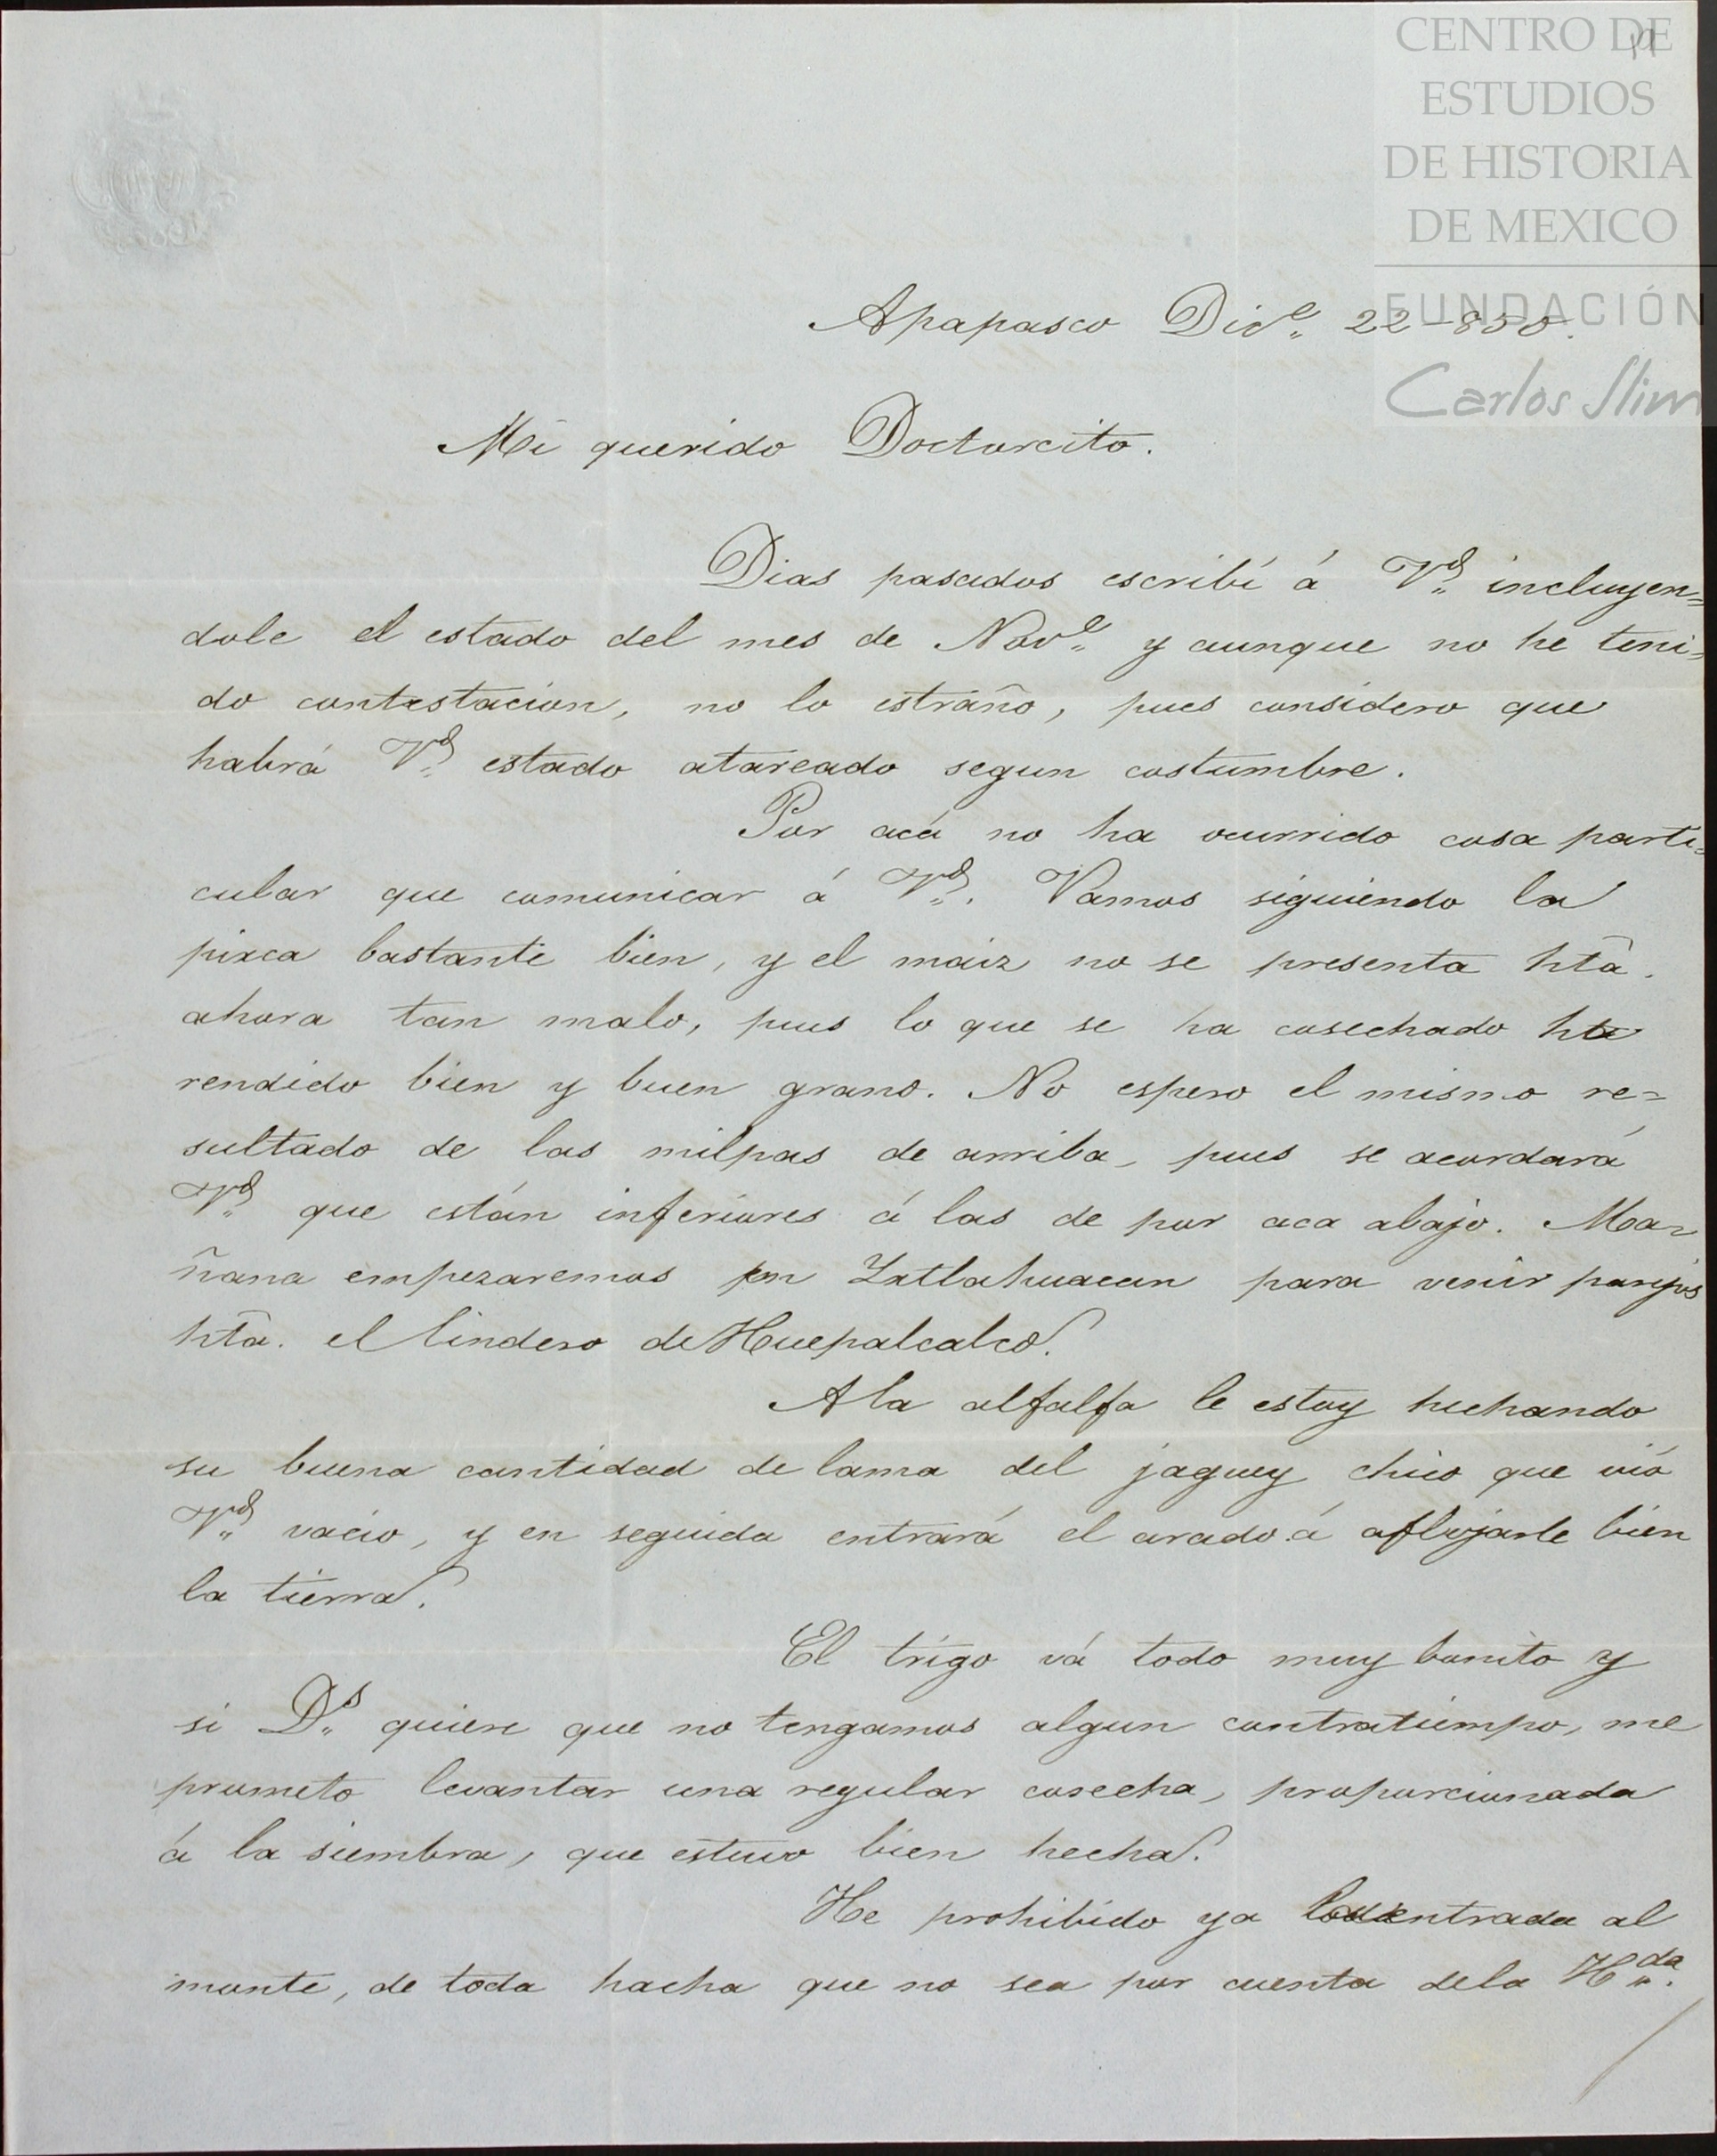 CENTRO DE
ESTUDIOS
DE HISTORIA
DE MEXICO
FUNDACIÓN
Carlos Slim
Apapasco Dice. 22-855.
Mi querido Doctorcito.
Dias pasados escribí á Vd. incluyen=
dole el estado del mes de Nove. y aunque no he teni=
do contestacion, no lo estraño, pues considero que
habrá Vd. estado atareado segun costumbre.
Por acá no ha ocurrido cosa parti=
cular que comunicar á Vd. Vamos siguiendo la
pixca bastante bien, y el maiz no se presenta hta.
ahora tan malo, pues lo que se ha cosechado ha
rendido bien y buen grano. No espero el mismo re=
sultado de las milpas de arriba, pues se acordará
Vd. que están inferiores á las de por aca abajo. Ma=
ñana empezaremos en Ixtlahuacan para venir parejos
hta. el lindero de Huepalcalco.
A la alfalfa le estoy hechando
su buena cantidad de lama del jaguey chico que vió
Vd. vacio, y en seguida entrará el arado á aflojarle bien
la tierra.
El trigo vá todo muy bonito y
si Ds. quiere que no tengamos algun contratiempo, me
prometo levantar una regular cosecha, proporcionada
á la siembra, que estuvo bien hecha.
He prohibido ya la entrada al
monte, de toda hacha que no sea por cuenta dela Hda.